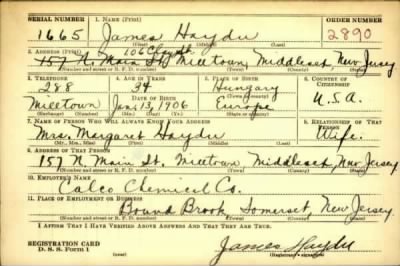 SERIAL NUMBER 1. NAME (Print) ORDER NUMBER
1665 James Haydu 2890
(First) (Middle) (Last)
2. ADDRESS (Print) 106 Clay St
157 N. Main St. Milltown, Middlesex, New Jersey
(Number and street or R. F. D. number) (Town) (County) (State)
3. TELEPHONE 4. AGE IN YEARS 5. PLACE OF BIRTH 6. COUNTRY OF CITIZENSHIP
288 34 Hungary
DATE OF BIRTH (Town or county)
Milltown Jan. 13, 1906 Europe U.S.A.
(Exchange) (Number) (Mo.) (Day) (Yr.) (State or country)
7. NAME OF PERSON WHO WILL ALWAYS KNOW YOUR ADDRESS 8. RELATIONSHIP OF THAT PERSON
Mrs. Margaret Haydu Wife
(Mr., Mrs., Miss) (First) (Middle) (Last)
9. ADDRESS OF THAT PERSON
157 N. Main St., Milltown, Middlesex, New Jersey
(Number and street or R. F. D. number) (Town) (County) (State)
10. EMPLOYER'S NAME
Calco Chemical Co.
11. PLACE OF EMPLOYMENT OR BUSINESS
Bound Brook, Somerset, New Jersey.
(Number and street or R. F. D. number) (Town) (County) (State)
I AFFIRM THAT I HAVE VERIFIED ABOVE ANSWERS AND THAT THEY ARE TRUE.
REGISTRATION CARD
D. S. S. Form 1 James Haydu
(Registrant's signature)